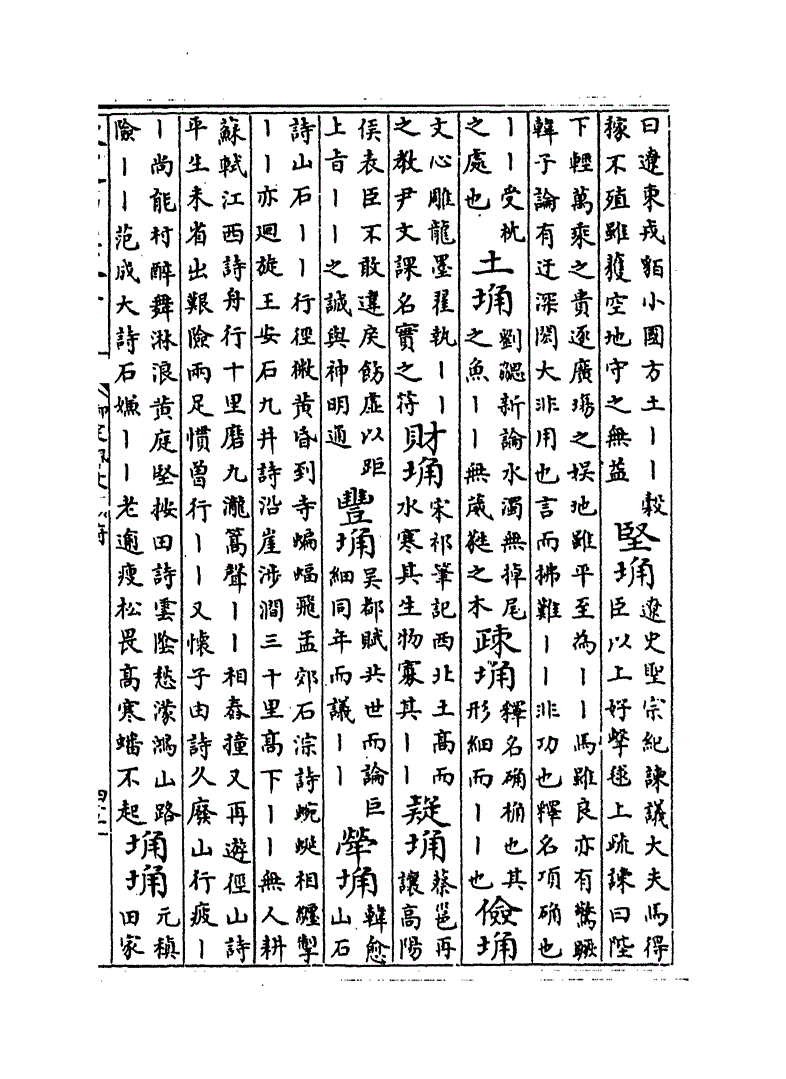 曰遼東戎貊小國方土丨丨榖
稼不殖雖獲空地守之無益
堅埆
遼史聖宗紀諫議大夫馬得
臣以上好擊毬上疏諫曰陛
下輕萬乘之貴逐廣塲之娱地雖平至為丨丨馬雖良亦有驚蹶
韓子論有迂深閎大非用也言而拂難丨丨非功也釋名項确也
丨丨受枕
之處也
土埆
劉勰新論水濁無掉尾
之魚丨丨無葳蕤之木
疎埆
釋名确桷也其
形細而丨丨也
儉埆
文心雕龍墨翟執丨丨
之教尹文課名實之符
財埆
宋祁筆記西北土高而
水寒其生物寡其丨丨
疑埆
蔡邕再
讓高陽
侯表臣不敢違戾飭虚以距
上旨丨丨之誠與神明通
豐埆
吴都賦共世而論巨
細同年而議丨丨
犖埆
韓愈
山石
詩山石丨丨行徑微黄昏到寺蝙蝠飛孟郊石淙詩蜿蜒相纒掣
丨丨亦迴旋王安石九井詩沿崖涉澗三十里高下丨丨無人耕
蘇軾江西詩舟行十里磨九瀧篙聲丨丨相舂撞又再遊徑山詩
平生未省出艱險兩足慣曾行丨丨又懷子由詩久廢山行疲丨
丨尚能村醉舞淋浪黄庭堅按田詩雲隂愁濛鴻山路
險丨丨范成大詩石嫌丨丨老逾瘦松畏高寒蟠不起
埆埆
元稹
田家